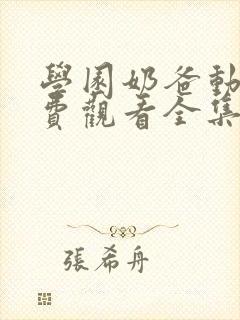 學園奶爸動
費觀看全集
張希舟